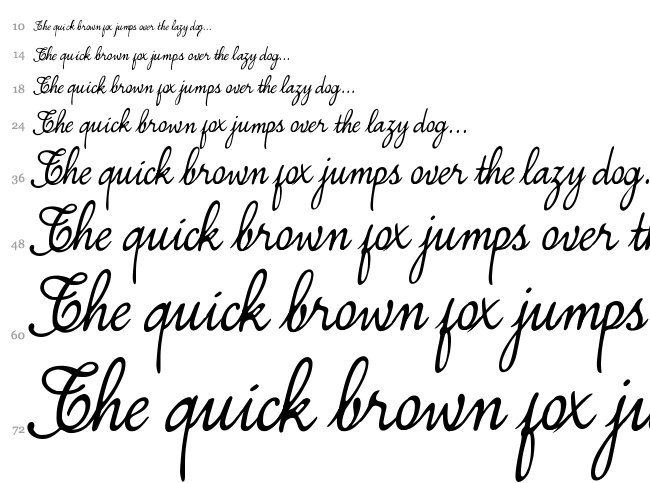 10 The quick brown fox jumps over the lazy dog...
14 The quick brown fox jumps over the lazy dog...
18 The quick brown fox jumps over the lazy dog...
24 The quick brown fox jumps over the lazy dog...
36 The quick brown fox jumps over the lazy dog.
48 The quick brown fox jumps over th
60 The quick brown fox jumps
72 The quick brown fox ju